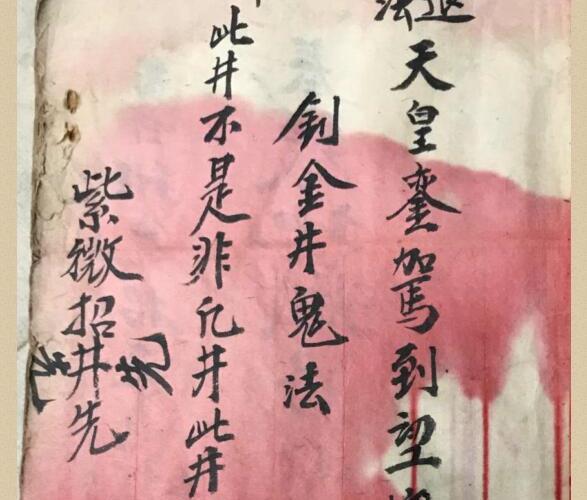 法天皇銮駕到望
釗金井鬼法
此井不是非凡井此井
紫微招井先